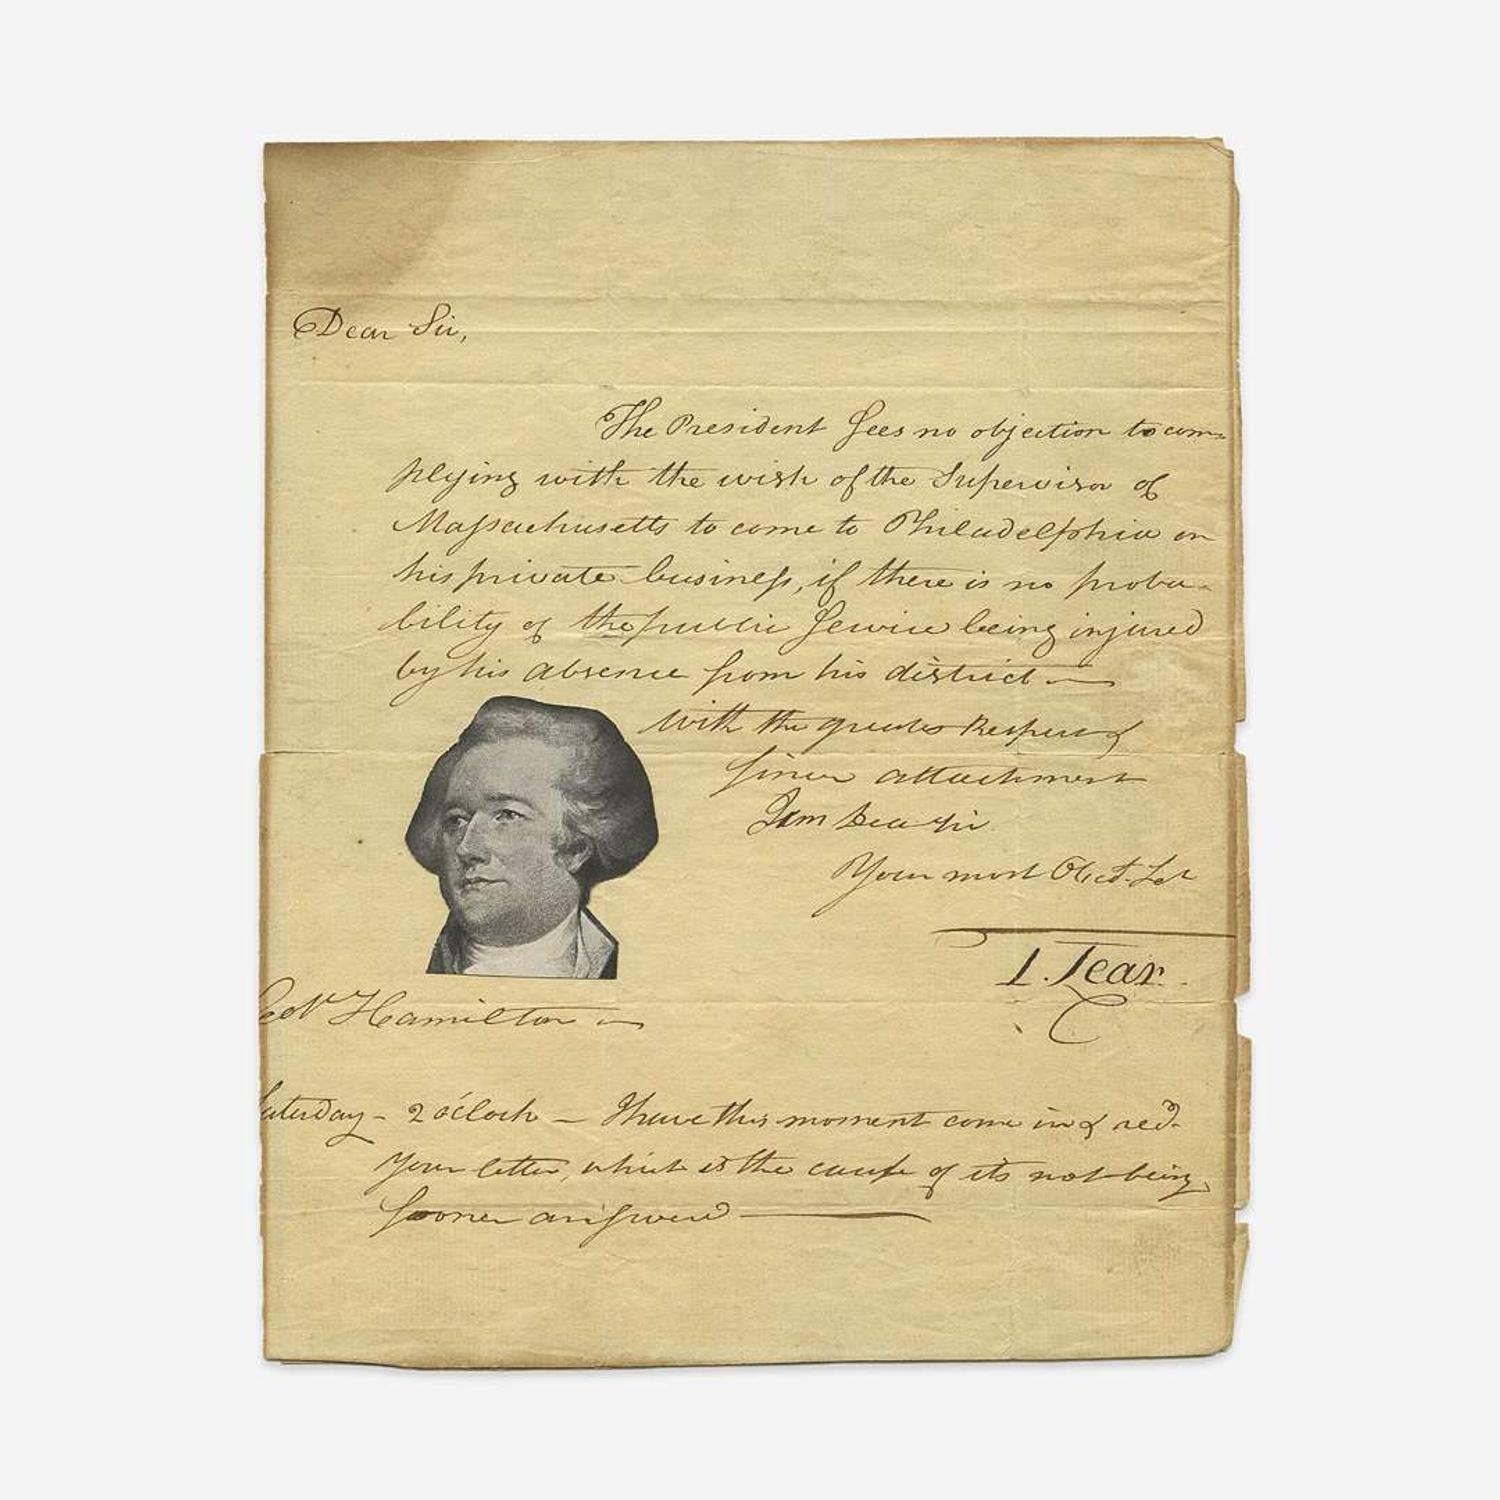 Dear Sir,
The President sees no objection to com-
plying with the wish of the Supervisor of
Massachusetts to come to Philadelphia on
his private business, if there is no proba-
bility of the public service being injured
by his absence from his district —
with the greates Respect &
sincer attachment
I am Dear Sir
Your most Obedt. Set
T. Lear.
Hamilton —
Saturday – 2 o'clock — I have this moment come in & recd.
your letter, which is the cause of its not being
sooner answered —